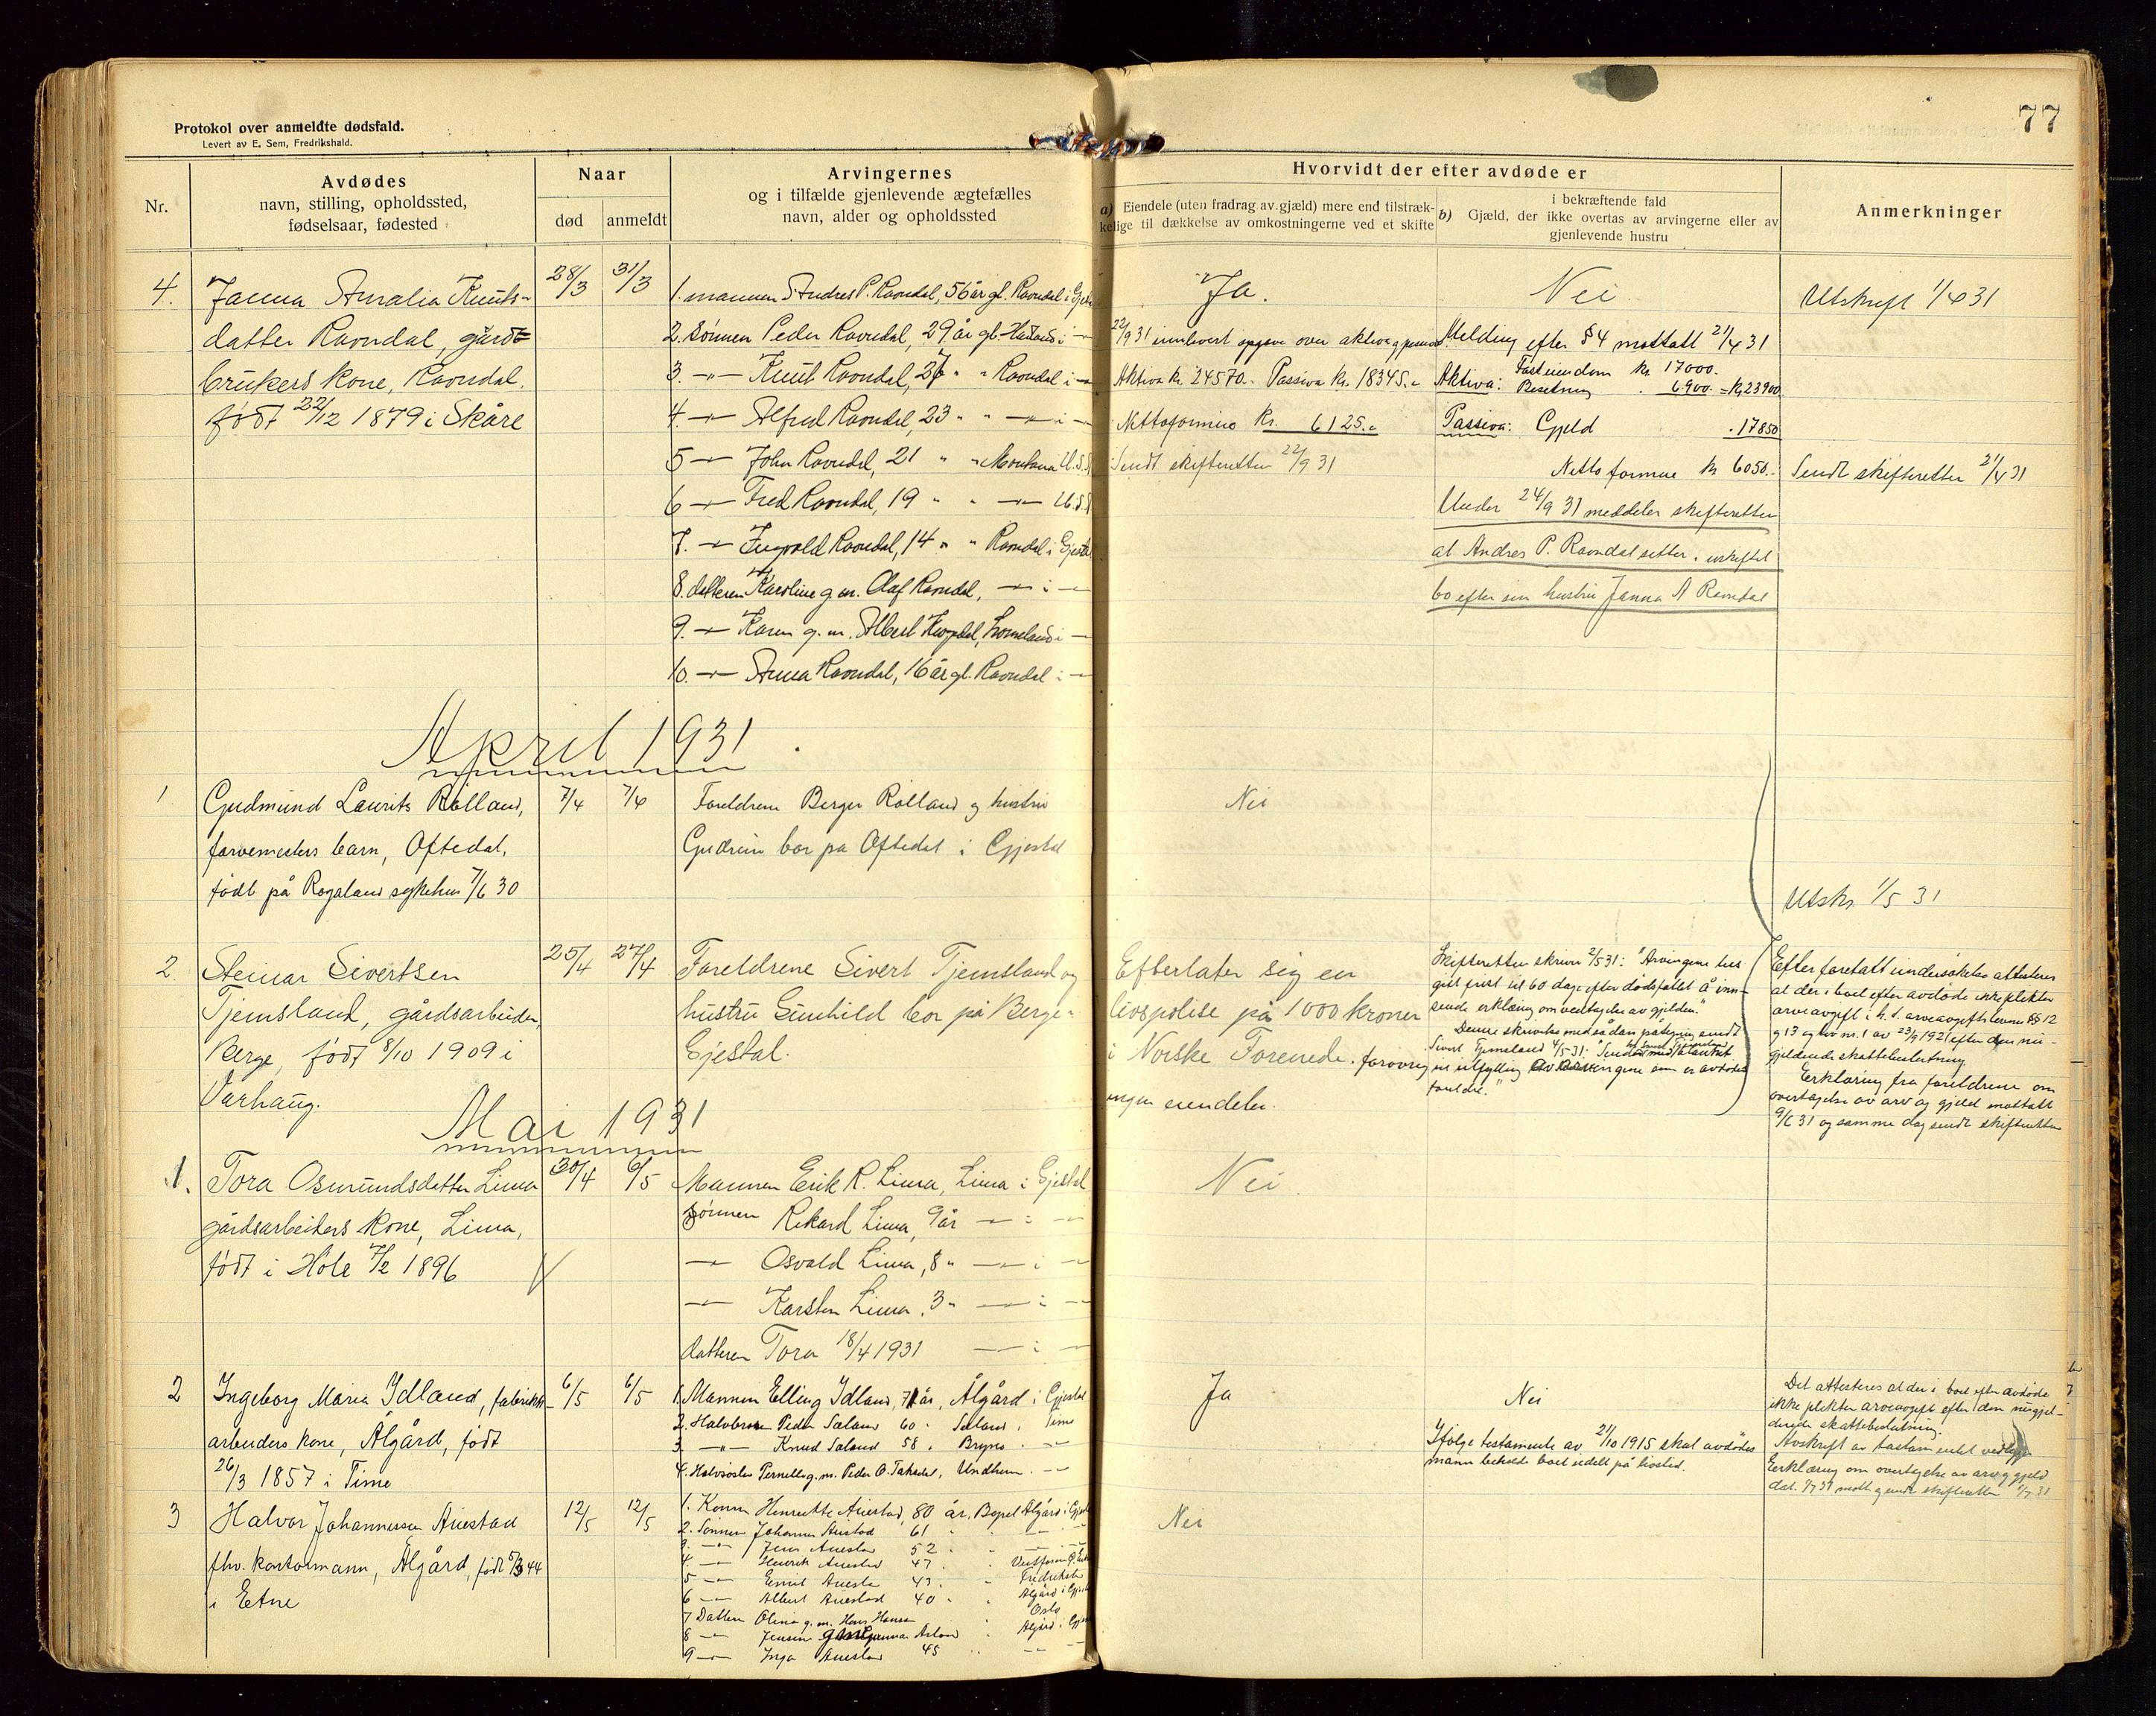 77
Protokol over anmeldte dødsfald.
Levert av E. Sem, Fredrikshald.
Nr.
Avdødes
navn, stilling, opholdssted,
fødselsaar, fødested
Naar
død
anmeldt
Arvingernes
og i tilfælde gjenlevende ægtefælles
navn, alder og opholdssted
Hvorvidt der efter avdøde er
a) Eiendele (uten fradrag av gjæld) mere end tilstræk-
kelige til dækkelse av omkostningerne ved et skifte
i bekræftende fald
b) Gjæld, der ikke overtas av arvingerne eller av
gjenlevende hustru
Anmerkninger
4.
Janna Amalia Knuts-
datter Ravndal, gårdt
brukers kone, Ravndal.
født 22/12 1879 i Skåre
28/3
31/3
1. mannen Andres P. Ravndal, 56 år gl. Ravndal i
2. sønnen Peder Ravndal, 29 år gl. i —
3. —"— Knut Ravndal, 27 " " Ravndal i —
4. —"— Alfred Ravndal, 23 " " —"— i —
5 —"— John Ravndal, 21 " " Montana U.S.
6 —"— Fred Ravndal, 19 " " —"— U.S.
7. —"— Ingvald Ravndal, 14 " " Ravndal i Gjestal
8. datteren Karoline g.m. Olaf Ravndal, —"— i —
9. —"— Karen g.m. Albert i —
10. —"— Anna Ravndal, 16 år gl. Ravndal i —
Ja.
22/9 31 innlevert opgave over aktiva g passiva
Aktiva kr. 24570.- Passiva kr. 18345.-
Nettoformue kr. 6125.-
Sendt skifteretten 22/9 31
Nei.
Melding efter § 4 mottatt 21/4 31
Aktiva: Fast eiendom kr. 17000.
Besetning 6900.- = kr 23900
Passiva: Gjeld . 17850
Netto formue kr 6050.-
Under 24/9 31 meddeler skifteretten
at Andres P. Ravndal sitter i uskiftet
bo efter sin hustru Janna A Ravndal
Utskrift 1/4 31
Sendt skifteretten 21/4 31
April 1931
1
Gudmund Laurits Rolland,
farvemesters barn, Oftedal,
født på Rogaland sykehus 7/6 30
7/4
7/4
Foreldrene Berger Rolland og hustru
Gudrun bor på Oftedal i Gjestal
Nei
Utskr. 1/5 31
2
Steinar Sivertsen
Tjemsland, gårdsarbeider,
Berge, født 8/10 1909 i
Varhaug.
25/4
27/4
Foreldrene Sivert Tjemsland og
hustru Gunhild bor på Berge i
Gjestal.
Efterlater sig en
livspolise på 1000 kroner
i Norske Forenede. forøvrig
ingen eiendeler.
Skifteretten skriver 2/5 31: "Arvingene has
gitt frist til 60 dage efter dødsfallet å inn-
sende erklæring om overtagelse av gjelden."
Denne skrivelse med sådan påtegning sendt
Sivert Tjemsland 4/5-31: "Sendes med blankett
til utfylling av arvingene som er avdødes
foreldre."
Efter foretatt undersøkelse attesteres
at der i boet efter avdøde ikke plikter
arveavgift i h.t. arveavgiftslovens §§ 12
g 13 og lov nr. 1 av 23/9 1921 efter den nu-
gjeldende skattebeslutning
Erklæring fra foreldrene om
overtagelse av arv og gjeld mottatt
9/6 31 og samme dag sendt skifteretten
Mai 1931
1.
Tora Osmundsdatter Lima
gårdsarbeiders kone, Lima,
født i Høle 7/2 1896
30/4
6/5
Mannen Erik R. Lima, Lima i Gjestal
sønnen Rikard Lima, 9 år —"— i —"—
—"— Osvald Lima, 8 " —"— i —
—"— Karsten Lima, 3 " —"— i —
datteren Tora 18/4 1931 —"— i —
Nei.
2
Ingeborg Maria Idland, fabrikk-
arbeiders kone, Ålgård, født
26/3 1857 i Time
6/5
6/5
1. Mannen Elling Idland, 71 år, Ålgård i Gjestal
2. Halvbror Peder Sæland 60 " Sæland i Time
3 —"— Knud Sæland 58 " Bryne . —"—
4. Halvsøster Pernille g.m. Peder O. Undheim . —"—
Ja
Nei
Ifølge testamente av 21/10 1915 skal avdødes
mann beholde boet udelt på livstid.
Det attesteres at der i boet efter avdøde
ikke plikter arveavgift efter den nugjel-
dende skattebeslutning.
Avskrift av testamentet vedlegges
Erklæring om overtagelse av arv g gjeld
dat. 1/7 31 mott. g sendt skifteretten 1/7 31
3
Halvor Johannessen Auestad
fhv. kontormann, Ålgård, født 5/3 44
i Etne
12/5
12/5
1. Konen Henriette Auestad, 80 år. Ålgård i Gjestal
2. Sønnen Johannes Auestad 61 " —"—
3. —"— Jens Auestad 52 " —"—
4. —"— Henrik Auestad 47 "
5 —"— Emil Auestad 43 " Fredrikstad
6 —"— Albert Auestad 40 " Ålgård i Gjestal
7 Datter Olina g.m. Hans Hansen Oslo
8 —"— Jensine Ålgård i Gjestal
9 —"— Inga Auestad 45 " —"—
Nei